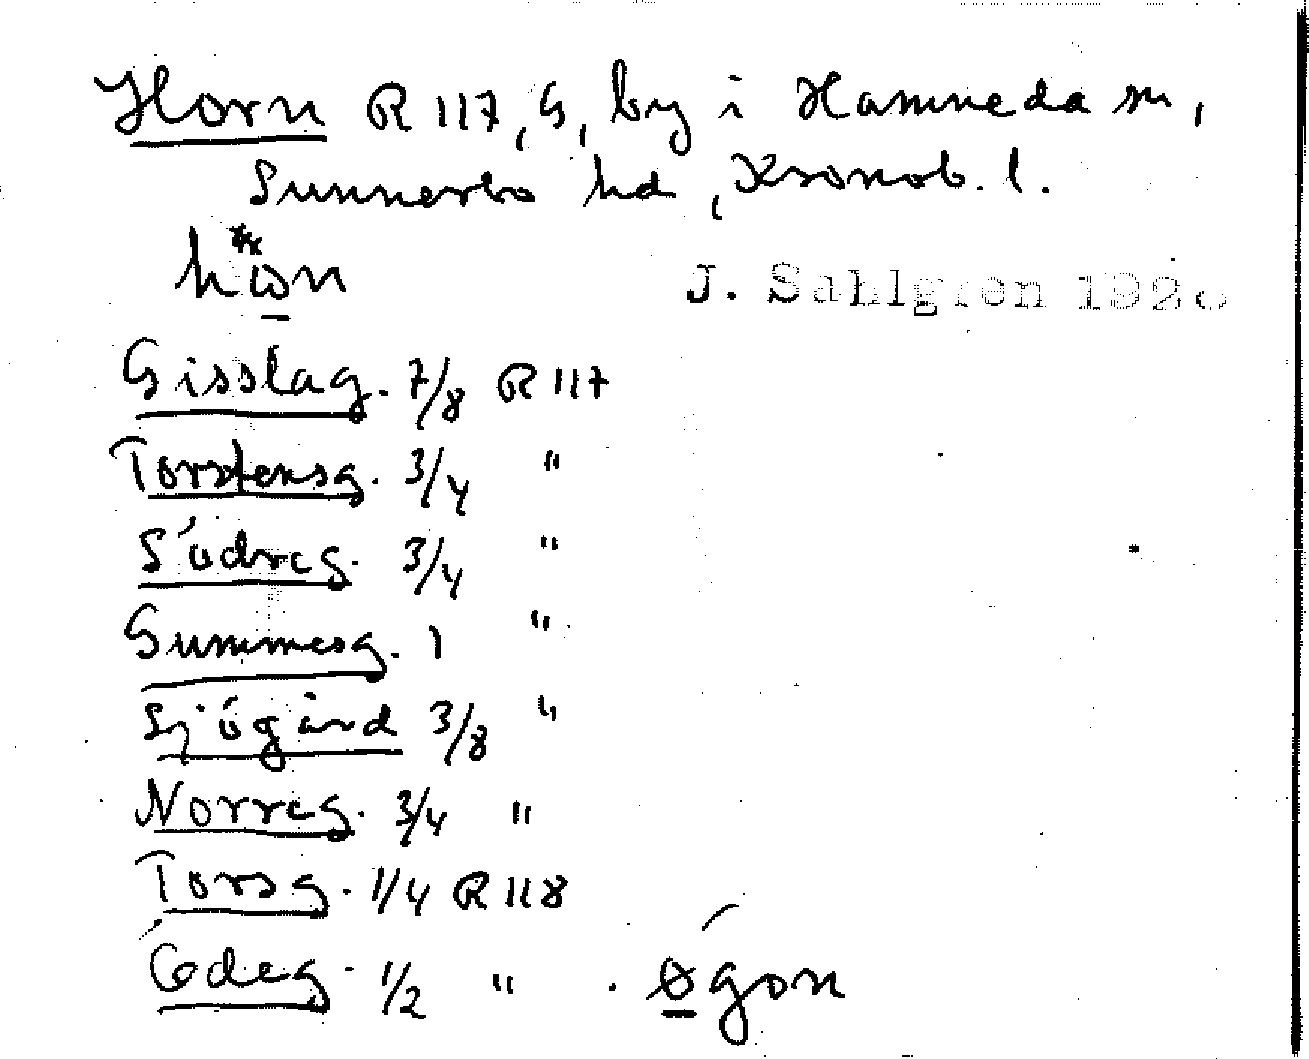 Horn R 117, G, by i Hamneda sn,
Sunnerbo hd, Kronob. l.
J. Sahlgren 192
Gisslag. 7/8 R 117
Torstensg. 3/4 "
Södreg. 3/4 "
Gummesg. 1 "
Sjögård 3/8 "
Norreg. 3/4 "
Torsg. 1/4 R 118
Ödeg. 1/2 " . øgon